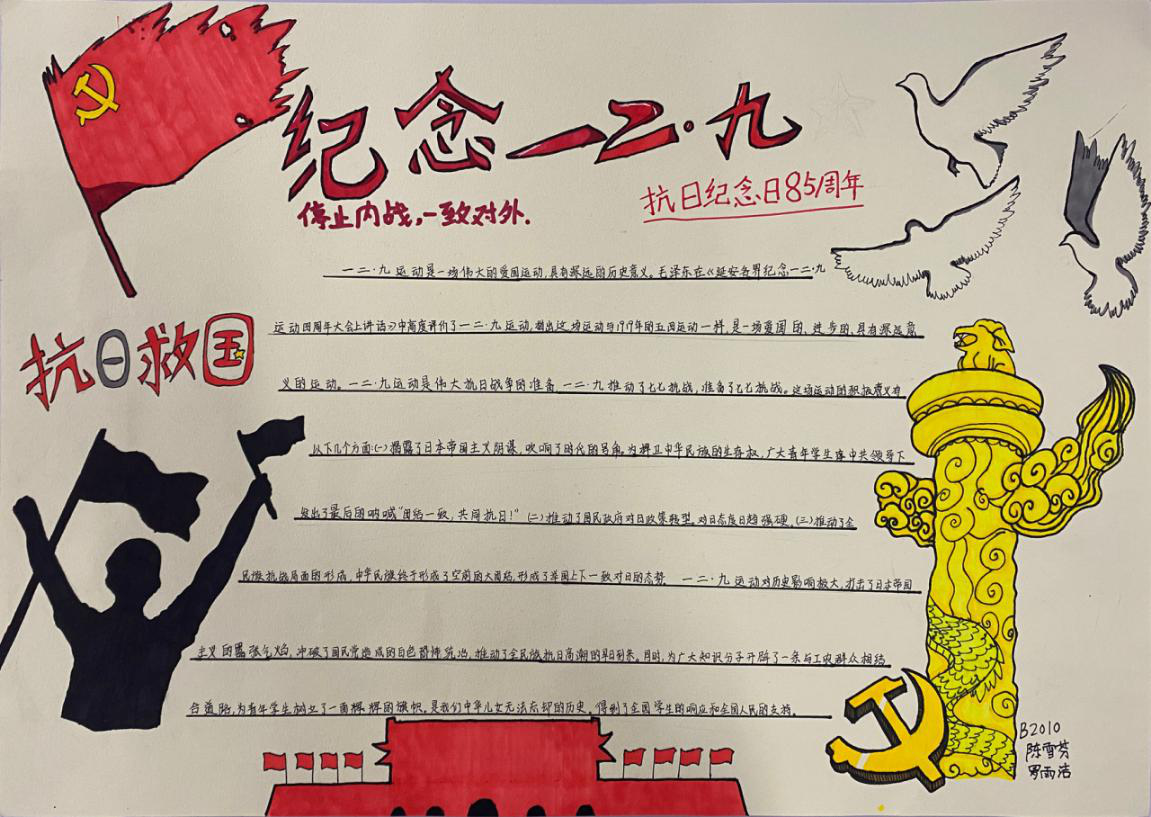 纪念一二·九
停止内战,一致对外.
抗日纪念日85周年
一二·九运动是一场伟大的爱国运动,具有深远的历史意义。毛泽东在《延安各界纪念一二·九
运动四周年大会上讲话》中高度评价了一二·九运动,指出这场运动与1919年的五四运动一样,是一场爱国的、进步的、具有深远意
义的运动。一二·九运动是伟大抗日战争的准备 一二·九推动了七七抗战,准备了七七抗战。这场运动的积极意义有
抗日救国
以下几个方面:(一)揭露了日本帝国主义阴谋,吹响了时代的号角。为捍卫中华民族的生存权,广大青年学生在中共领导下
发出了最后的呐喊"团结一致,共同抗日!"(二)推动了国民政府对日政策转型,对日态度日趋强硬,(三)推动了全
民族抗战局面的形成,中华民族终于形成了空前的大团结,形成了举国上下一致对日的态势 一二·九运动对历史影响极大,打击了日本帝国
主义的嚣张气焰,冲破了国民党造成的白色恐怖统治,推动了全民族抗日高潮的早日到来。同时,为广大知识分子开辟了一条与工农群众相结
合道路,为青年学生树立了一面辉辉的旗帜,是我们中华儿女无法忘却的历史。得到了全国学生的响应和全国人民的支持。
B2010
陈雪芬
罗雨洁